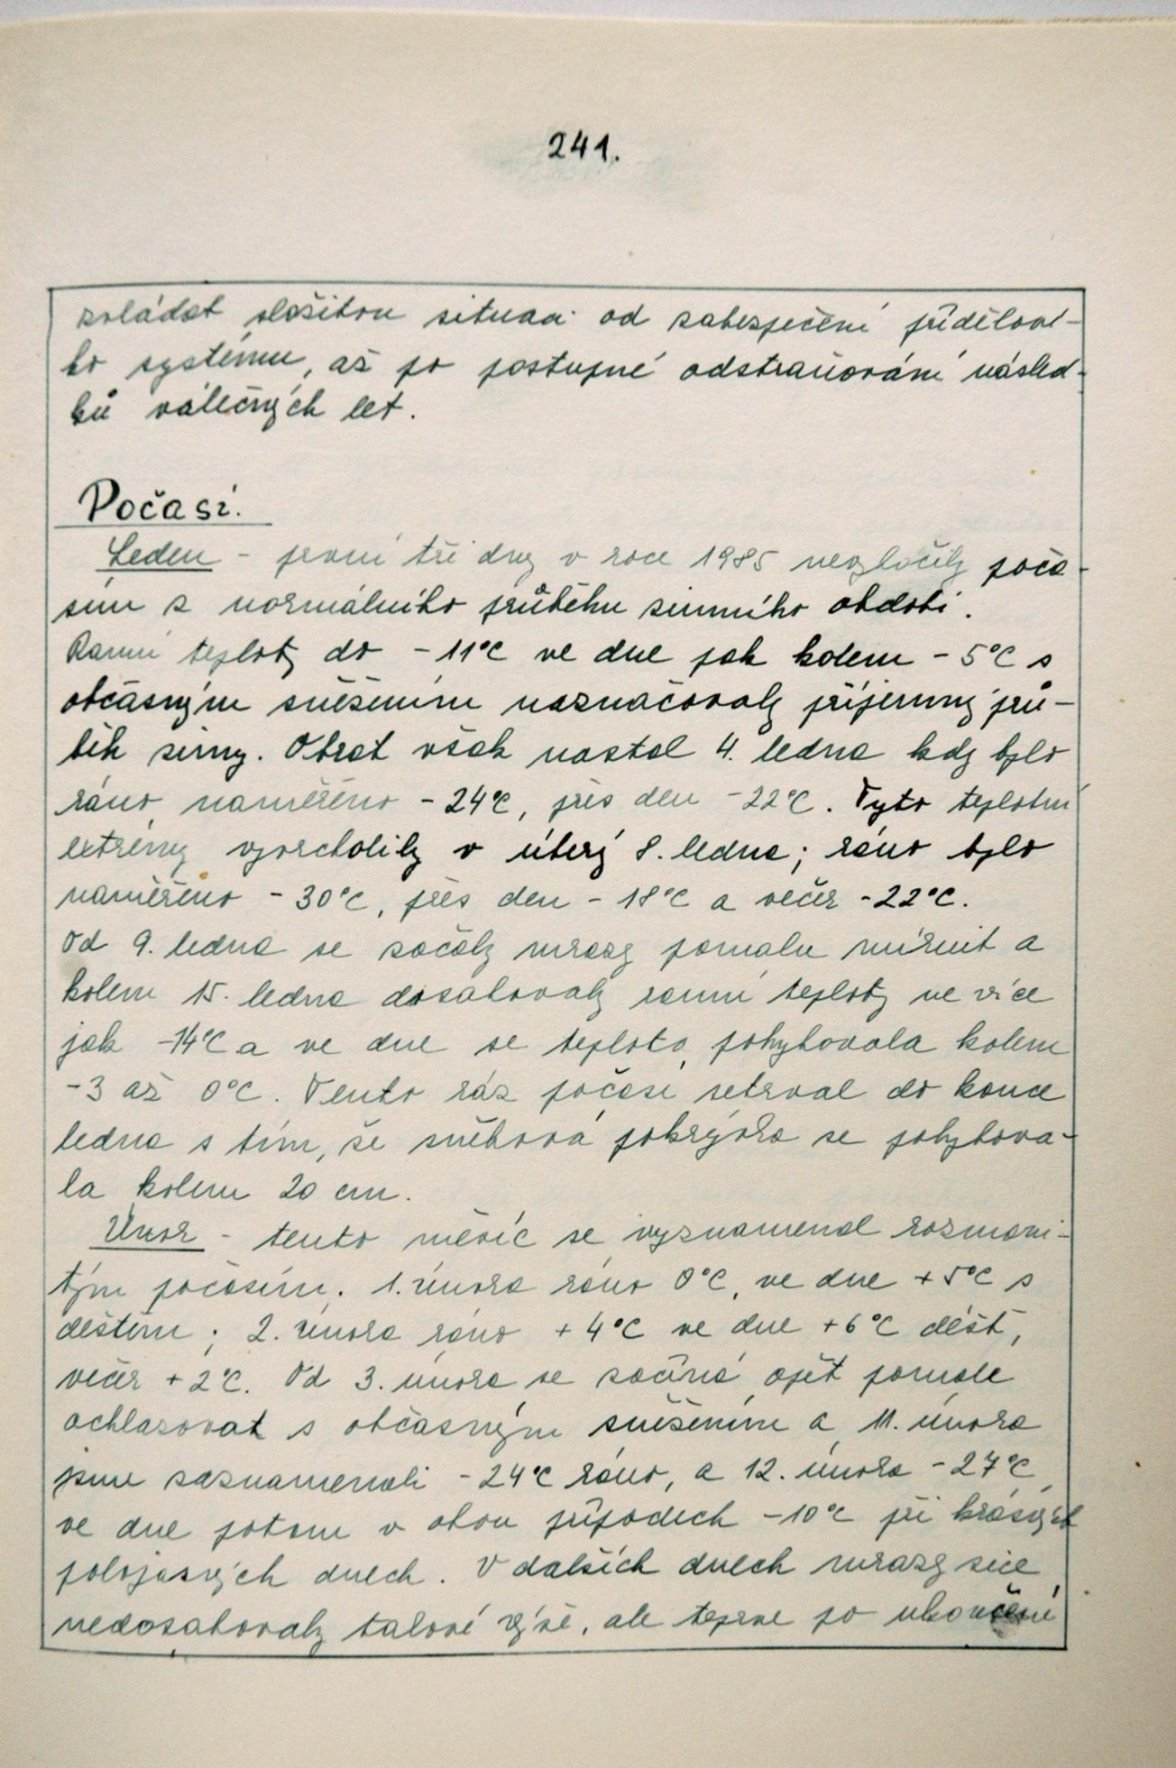 241.
zvládat složitou situaci od zabezpečení přídělové-
ho systému, až po postupné odstraňování násled-
ků válečných let.
Počasí.
Leden - první tři dny v roce 1985 nevybočily počа-
sím z normálního průběhu zimního období.
Ranní teploty do -11°C ve dne pak kolem -5°C s
občasným sněžením naznačovaly příjemný prů-
běh zimy. Obrat však nastal 4. ledna kdy bylo
ráno naměřeno -24°C, přes den -22°C. Tyto teplotní
extrémy vyvrcholily v úterý 8. ledna; ráno bylo
naměřeno -30°C, přes den -18°C a večer -22°C.
Od 9. ledna se začaly mrazy pomalu mírnit a
kolem 15. ledna dosahovaly ranní teploty ne více
jak -14°C a ve dne se teplota pohybovala kolem
-3 až 0°C. Tento ráz počasí setrval do konce
ledna s tím, že sněhová pokrývka se pohybova-
la kolem 20 cm.
Únor - tento měsíc se vyznamenal rozmani-
tým počasím. 1. února ráno 0°C, ve dne +5°C s
deštěm; 2. února ráno +4°C ve dne +6°C déšť,
večer +2°C. Od 3. února se začíná opět pomalu
ochlazovat s občasným sněžením a 11. února
jsme zaznamenali -24°C ráno, a 12. února -27°C
ve dne potom v obou případech -10°C při krásných
polojasných dnech. V dalších dnech mrazy sice
nedosahovaly takové výše, ale teprve po ukončení